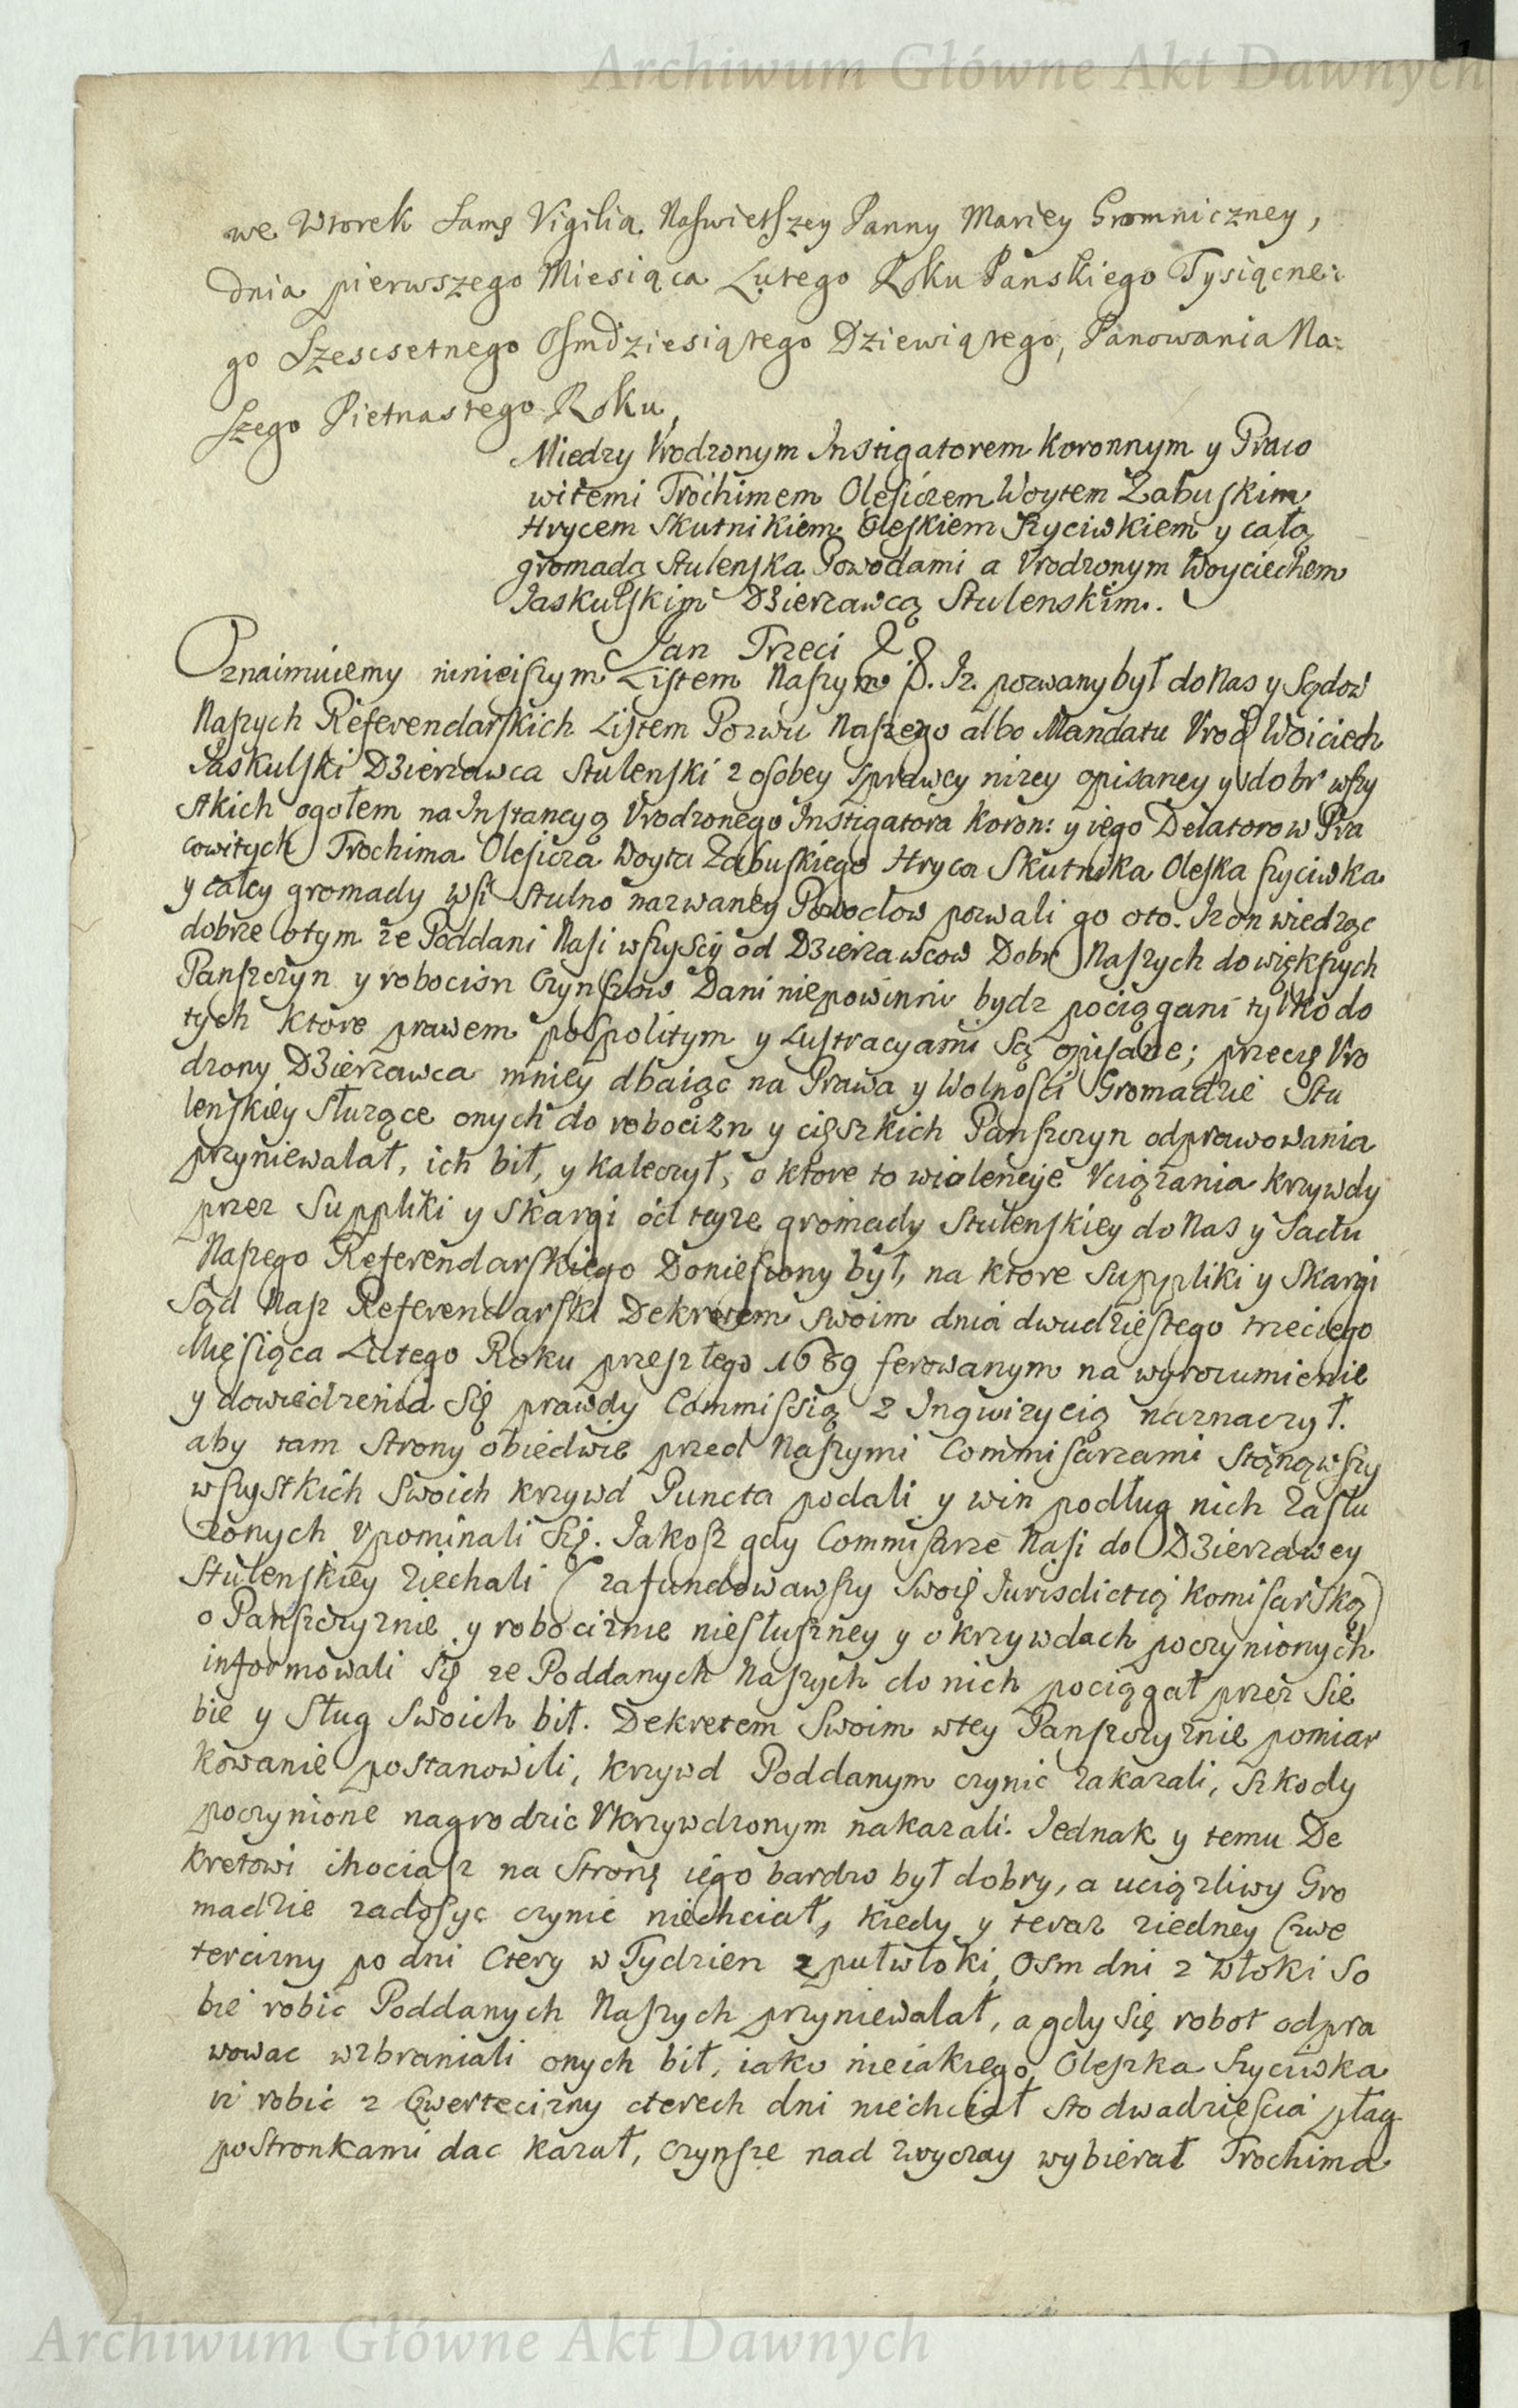 Archiwum Główne Akt Dawnych
we Wtorek Samę Vigilią Naswietszey Panny Mariey Gromniczney,
dnia pierwszego Miesiąca Lutego Roku Panskiego Tysiącne:
go Szescsetnego Osmdziesiątego Dziewiątego, Panowania Na:
szego Pietnastego Roku,
Miedzy Vrodzonym Instigatorem Koronnym y Praco
witemi Trochimem Olesiczem Woytem Zabuskim
Hrycem Skutnikiem Oleskiem Szyciwkiem y całą
gromadą Stulenska Powodami a Vrodzonym Woyciechem
Jaskulskim Dzierzawcą Stulenskim.
Jan Trzeci
Oznaimuiemy ninieiszym Listem Naszym iż. Iż. pozwany był do Nas y Sądow
Naszych Referendarskich Listem Pozwu Naszego albo Mandatu Vrod Woiciech
Jaskulski Dzierzawca Stulenski z osobey sprawey nizey opisaney y dobr wszy
stkich ogołem na Instancyą Vrodzonego Instigatora Koron: y iego Delatorow Pra
cowitych Trochima Olesicza Woyta Zabuskiego Hryca Skutnika Oleska szyciwka
y całey gromady wsi Stulno nazwaney Powodow pozwali go oto. Iż on wiedząc
dobrze otym ze Poddani Nasi wszyscy od Dzierzawcow Dobr Naszych do większych
Panszczyn y robocizn Czynszow Dani niepowinni bydz pociągani tylko do
tych ktore prawem pospolitym y Lustracyami Są opisane; przecię Vro
dzony Dzierzawca mniey dbaiąc na Prawa y Wolności Gromadzie Stu
lenskiey służące onych do robocizn y cięszkich Panszczyn odprawowania
przyniewalał, ich bił, y kaleczył, o ktore to wiolencye Vciązania krzywdy
przez Suppliki y Skargi od teyże gromady Stulenskiey do Nas y Sadu
Naszego Referendarskiego Doniesiony był, na ktore Suppliki y Skargi
Sąd Nasz Referendarski Dekretem swoim dnia dwudziestego trzeciego
Miesiąca Lutego Roku przeszłego 1689 ferowanym na wyrozumienie
y dowiedzenia Się prawdy Commissią z Inqwizycią naznaczył.
aby tam Strony obiedwie przed Naszymi Commisarzami Stanąwszy
wszystkich Swoich krzywd Puncta podali y win podług nich Zasłu
zonych Vpominali Się. Jakosz gdy Commisarze Nasi do Dzierzawey
Stulenskiey ziechali (zafundowawszy Swoię Jurisdictią Komisarską)
o Panszczyznie y robociznie niesłuszney y o krzywdach poczynionych
informowali Się ze Poddanych Naszych do nich pociągał przez Sie
bie y Sług Swoich bił. Dekretem Swoim wtey Panszczyznie pomiar
kowanie postanowili, krzywd Poddanym czynic zakazali, szkody
poczynione nagrodzic Vkrzywdzonym nakazali. Jednak y temu De
kretowi ihociasz na Stronę iego bardzo był dobry, a uciązliwy Gro
madzie zadosyc czynic niechciał, kiedy y teraz ziedney Czwe
tercizny po dni Ctery w Tydzien z pułwłoki, Osm dni z Włoki So
bie robic Poddanych Naszych przyniewalał, a gdy Się robot odpra
wowac wzbraniali onych bił, iako nieiakiego Oleszka Szyciwka
iż robic z Czwertecizny cterech dni niechciał sto dwadziescia plag
postronkami dac kazał, czynsze nad zwyczay wybierał Trochima
Archiwum Główne Akt Dawnych